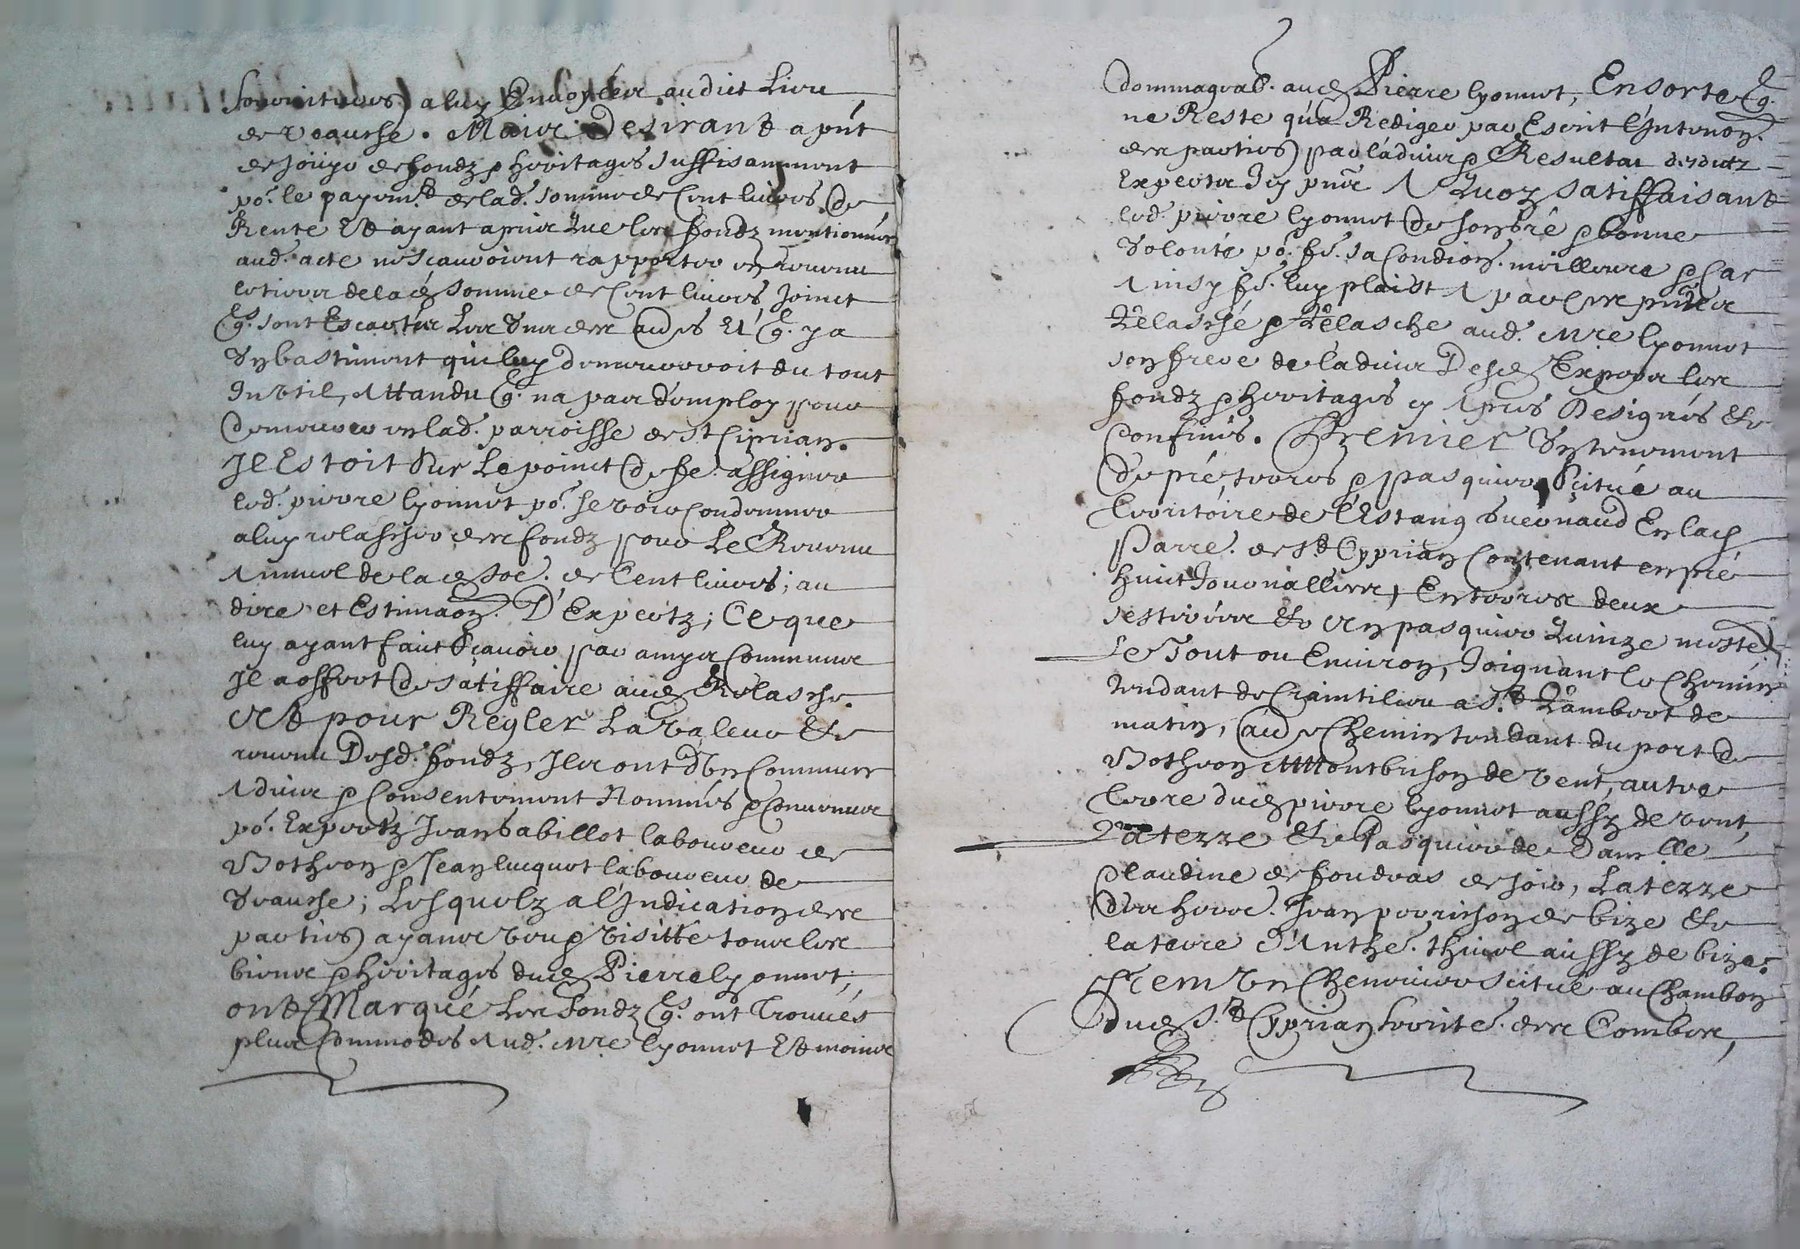 fournitures) a luy Envoyéer audict Lieu
de veausse. Mair Desirant a pnt
de Joüyr de fondz & heritages Suffisamment
po.r le payem.t de lad. somme de Cent livres de
Rente Et ayant apriw Que les fondz mentionnés
aud. acte ne scauroient rapporter un revenu
entier de lad somme de Cent livres Joinct
q. sont Escartés Les uns des au.es Et q. y a
Un bastiment qui luy demeureroit du tout
Inutil, Attandu q. na pas d'employ pour
demeurer en lad. parroisse de St Ciprian.
Il Estoit Sur Le poinct de fe. assigner
led. pierre lyonnet po.r se voir Condamner
a luy relascher des fondz pour Le Revenu
Annuel de lad soe. de Cent livres; au
dire et Estimaon. D'Expertz; Ce que
luy ayant faict Scavoir par amys Communs
Il a offert de satiffaire aud Relasche.
Et pour Regler La valeur &
revenu Desd. fondz, Ils ont d'Un Commun
Advis & Consentement Nommés & Convenus
po.r Expertz Jean Sabillot laboureur de
Botheon & Jean lucquet laboureur de
Veausse; Lesquelz a l'Indication des
parties) ayans veu & visitté tous les
biens & heritages dud Pierre lyonnet,
ont Marqué Les Fondz q. ont Trouvés
plus Commodes Aud. Mre lyonnet Et moins
dommageab. aud Pierre lyonnet, En sorte q.
ne Reste qu'a Rediger par Escrit l'Intenon.
des parties) par l'advis & Resultat desdictz
Expertz Icy pnr A Quoy satiffaisant
led. pierre lyonnet de son gré & bonne
Volonté po.r fe. sa Condion. meilleure & Car
Ainsy fe. luy plaist A par Ces pntes
Relasché & Relasche aud. Mre lyonnet
son frere de l'advis Desd Expers les
fondz & heritages cy Apres Designés &
Confinés. Premier Un tenement
de pré, terres & pasquier Scitué au
territoire de l'Estang Suernaud En lad
Parre. de St Cyprian Contenant en pré
huict Journallier, En terres deux
sestiers & En pasquier Quinze mestes
Le Tout ou Environ, Joignant le Chemin
tendant de Craintilieu a St Rambert de
matin, aud.e Chemin tendant du port de
Botheon A Montbrison de vent, autre
terre dud pierre lyonnet aussy de vent,
La terre & Pasquier de Damlle
Claudine de foudras de soir, La terre
des hers. Jean perrichon de bize &
la terre d'Anthe. thivel aussy de bize.
Item Un Chenevier Scitué au Chambon
dud St Cyprian territe. des Combes,